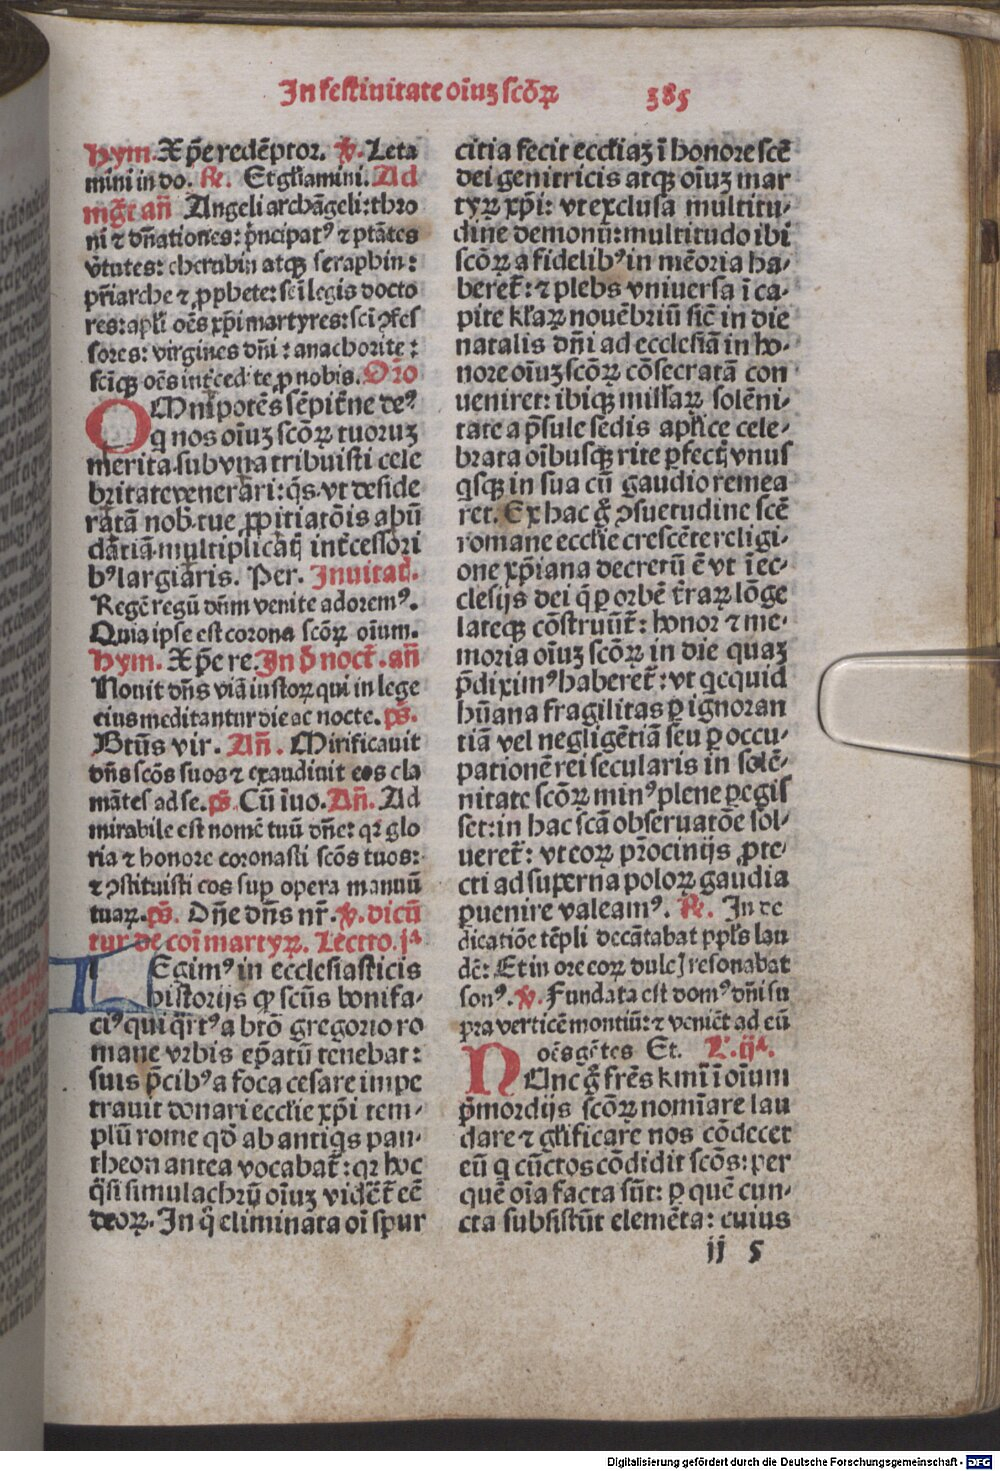 In festiuitate oīuꝫ scōꝝ 385
hym. Xp̄e redēptor. ꝟ. Leta
mini in do. ℞. Et gl̄iamini. Ad
mgr̄t an̄ Angeli archāgeli: thro
ni ⁊ dn̄ationes: p̄ncipatꝰ ⁊ ptātes
v̄tutes: cherubin atqꝫ seraphin:
pr̄iarche ⁊ ꝓphete: sc̄i legis docto
res: apl̄i oēs xp̄i martyres: sc̄i ꝯfes
sores: virgines dn̄i: anachorite:
sc̄iqꝫ oēs int̄cedite ꝓ nobis. Or̄o
OMnipotēs sēpit̄ne deꝰ
q̇ nos oīuꝫ scōꝝ tuoruꝫ
merita sub vna tribuisti cele
britate venerari: q̄s vt deside
ratā nob̄ tue ꝓpitiatōis abū
dātiā multiplicatꝭ int̄cessori
bꝰ largiaris. Per. Inuitad̄.
Regē regū dn̄m venite adoremꝰ.
Quia ipse est corona scōꝝ oīum.
hym. Xp̄e re. In p̄ noct̄. an̄
Nouit dn̄s viā iustoꝝ qui in lege
eius meditantur die ac nocte. ps̄.
Btūs vir. An̄. Mirificauit
dn̄s scōs suos ⁊ exaudiuit eos cla
mātes ad se. ps̄ Cū īuo. An̄. Ad
mirabile est nomē tuū dn̄e: qꝛ glo
ria ⁊ honore coronasti scōs tuos:
⁊ ꝯstituisti eos suꝑ opera manuū
tuaꝝ. ps̄. Dn̄e dn̄s nr̄. ꝟ. dicū
tur de coī martyꝝ. Lectio. jᵃ
LEgimꝰ in ecclesiasticis
historijs ꝙ scūs bonifa-
ciꝰ qui q̄rtꝰ a btō gregorio ro
mane vrbis ep̄atū tenebat:
suis p̄cibꝰ a foca cesare impe
trauit donari eccl̄ie xp̄i tem-
plū rome qd̄ ab antiq̇s pan-
theon antea vocabat̄: qꝛ hoc
q̄si simulachrū oīuꝫ videt̄ eē
deoꝝ. In q̇ eliminata oī spur
citia fecit eccl̄iaꝫ ī honore scē
dei genitricis atqꝫ oīuꝫ mar
tyꝝ xp̄i: vt exclusa multitu-
dine demonū: multitudo ibi
scōꝝ a fidelibꝰ in mēoria ha-
beret̄: ⁊ plebs vniuersa ī ca-
pite kl̄aꝝ nouēbriū sic̄ in die
natalis dn̄i ad ecclesiā in ho-
nore oīuꝫ scōꝝ cōsecratā con
ueniret: ibiqꝫ missaꝝ solēni-
tate a p̄sule sedis apl̄ice cele-
brata oībusqꝫ rite ꝑfectꝭ vnus
q̇sqꝫ in sua cū gaudio remea
ret. Ex hac g̊ ꝯsuetudine scē
romane eccl̄ie crescēte religi-
one xp̄iana decretū ē vt ī ec-
clesijs dei q̄ ꝑ orbē t̄raꝝ lōge
lateqꝫ cōstruūt̄: honor ⁊ me-
moria oīuꝫ scōꝝ in die quaꝫ
p̄diximꝰ haberet̄: vt qcquid
hūana fragilitas ꝑ ignoran
tiā vel negligētiā seu ꝑ occu-
pationē rei secularis in solē-
nitate scōꝝ minꝰ plene ꝑegis
set: in hac scā obseruatōe sol-
ueret̄: vt eoꝝ pr̄ocinijs ꝓte-
cti ad superna poloꝝ gaudia
ꝑuenire valeamꝰ. ℞. In de
dicatiōe tēpli decātabat ppl̄s lau
dē: Et in ore eoꝝ dulc̄ resonabat
sonꝰ. ꝟ. Fundata est domꝰ dn̄i su
pra verticē montiū: ⁊ veniēt ad eū
oēs gētes Et. L. ijᵃ.
NUnc g̊ fr̄es kmī ī oīum
p̄mordijs scōꝝ nomīare lau
dare ⁊ gl̄ificare nos cōdecet
eū q̇ cūctos cōdidit scōs: per
quē oīa facta sūt: ꝑ quē cun-
cta subsistūt elemēta: cuius
jj 5
Digitalisierung gefördert durch die Deutsche Forschungsgemeinschaft - DFG